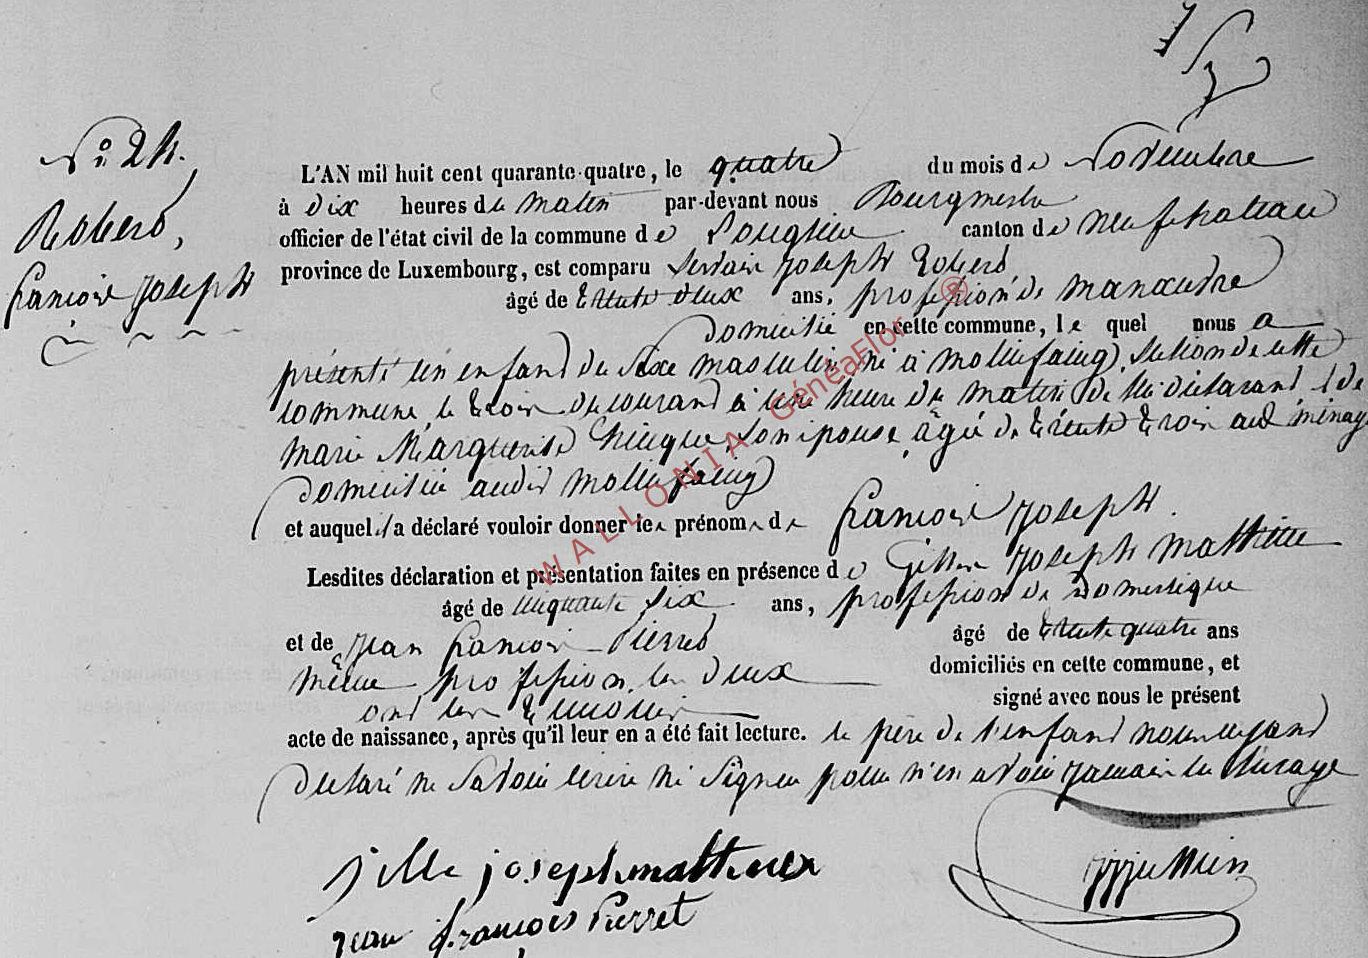 N° 24.
Robert,
françois joseph
L'AN mil huit cent quarante-quatre, le quatre du mois de Novembre
à dix heures du matin par-devant nous Bourgmestre
officier de l'état civil de la commune de Longlier canton de neufchateau
province de Luxembourg, est comparu Servais joseph Robert
âgé de trente deux ans, profession de manœuvre
domicilié en cette commune, le quel nous a
présenté un enfant du sexe masculin né à mollinfaing, section de cette
commune, le trois du courant à une heure du matin de lui déclarant & de
marie Marguerite son épouse, âgée de trente trois ans ménag
domiciliée audit mollinfaing
et auquel il a déclaré vouloir donner les prénoms de françois joseph.
Lesdites déclaration et présentation faites en présence de Gille joseph mathieu
âgé de cinquante six ans, profession de domestique
et de jean françois Pierret âgé de trente quatre ans
même profession, les deux domiciliés en cette commune, et
ont les témoins signé avec nous le présent
acte de naissance, après qu'il leur en a été fait lecture. le père de l'enfant nous ayant
déclaré ne savoir écrire ni signer pour n'en avoir jamais eu l'usage
jille joseph mathieu
jean françois Pierret
WALLONIA GénéaFlor ®